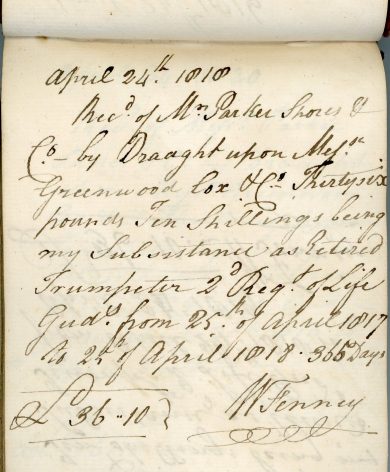 April 24th. 1818
Recd of Mr Parker Shores &
Co - by Draught upon Messrs
Greenwood Cox & Co. Thirtysix
pounds Ten Shillings being
my Subsistance as Retired
Trumpeter 2d Regt. of Life
Guds. from 25th. of April 1817
to 24th of April 1818 - 365 Days
£ 36-10
W Fenney